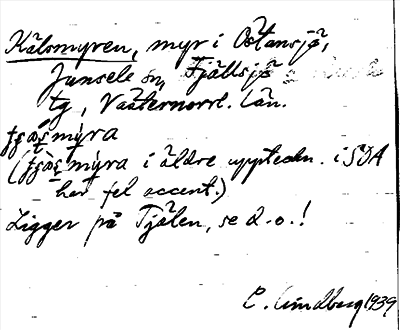 Kälsmyren, myr i Östansjö,
Junsele sn, Fjällsjö
tg, Västernorrl. län.
myra
(myra i äldre uppteckn. i SOA
har fel accent.)
Ligger på Tjälen, se d.o.!
C. Lindberg 1939